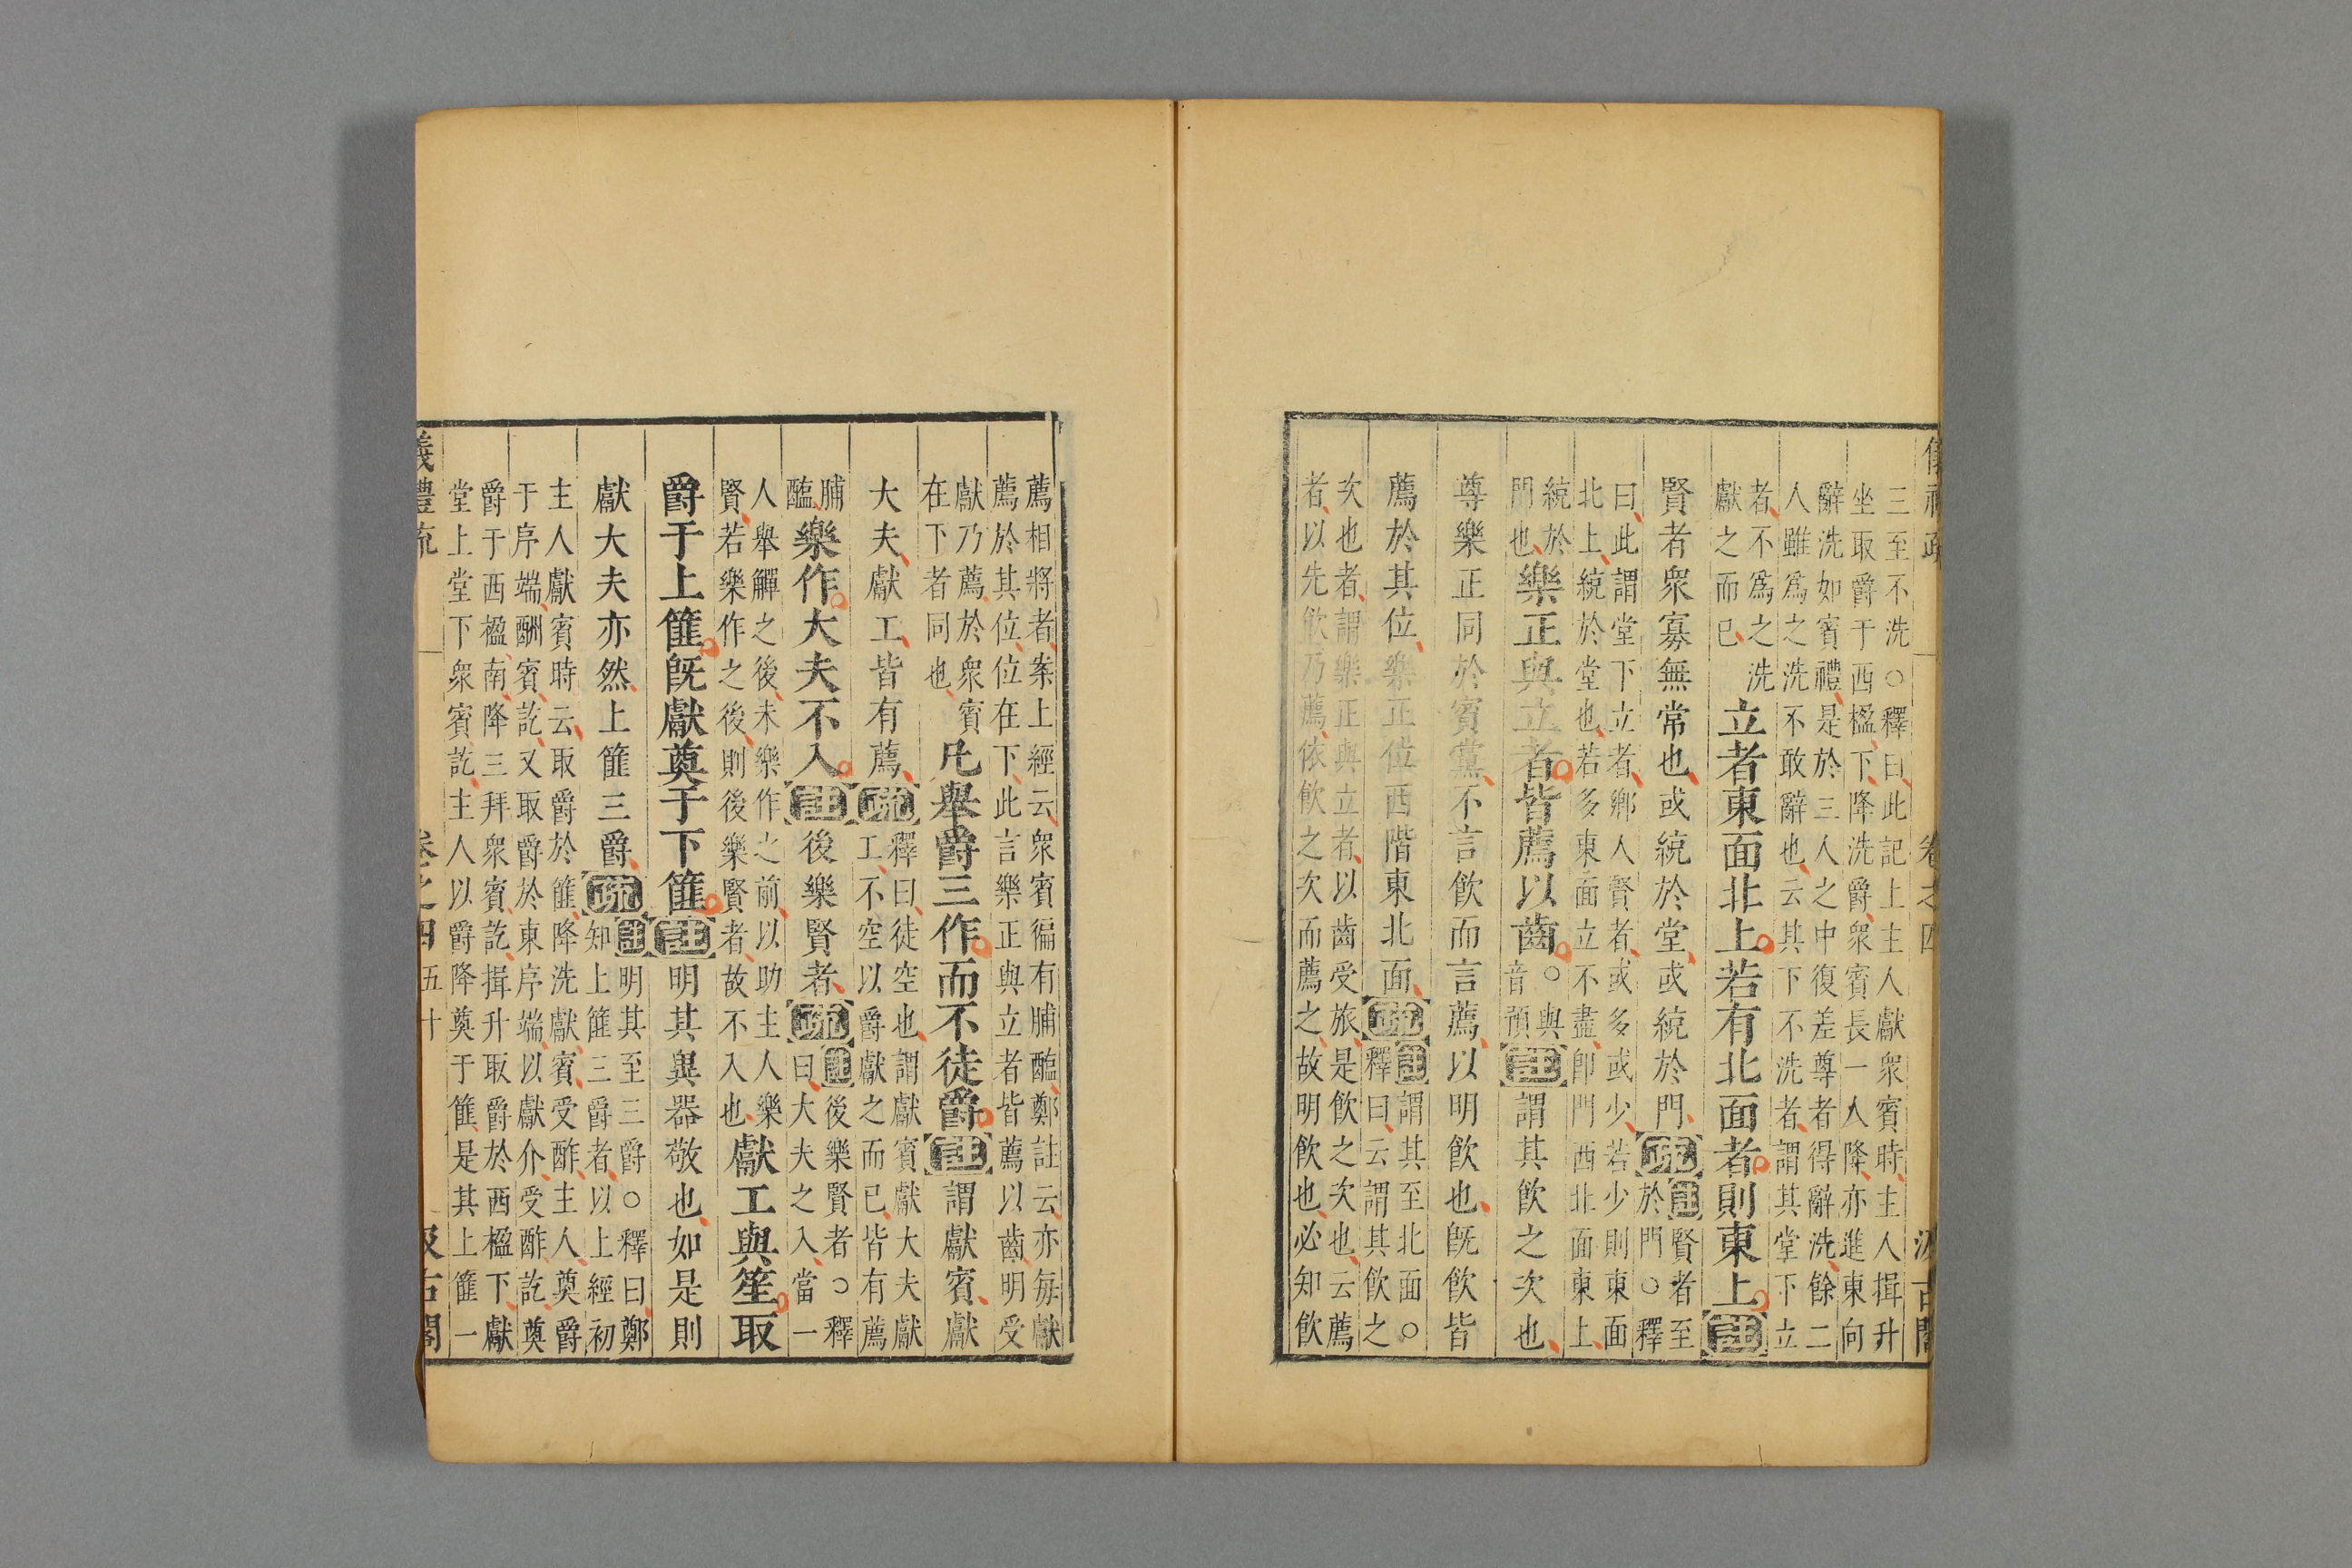 儀禮疏 卷之四 汲古閣
三至不洗○釋曰此記上主人獻衆賓時主人揖升
坐取爵于西楹下降洗爵衆賓長一人降亦進東向
辭洗如賓禮是於三人之中復差尊者得辭洗餘二
人雖爲之洗不敢辭也云其下不洗者謂其堂下立
者不爲之洗
獻之而已
立者東面北上若有北面者則東上註
賢者衆寡無常也或統於堂或統於門疏
註賢者至
於門○釋
曰此謂堂下立者鄉人賢者或多或少若少則東面
北上統於堂也若多東面立不盡即門西北面東上
統於
門也
樂正與立者皆薦以齒
○與
音預
註謂其飲之次也
尊樂正同於賓黨不言飲而言薦以明飲也旣飲皆
薦於其位樂正位西階東北面疏
註謂其至北面○
釋曰云謂其飲之
次也者謂樂正與立者以齒受旅是飲之次也云薦
者以先飲乃薦依飲之次而薦之故明飲也必知飲
薦相將者案上經云衆賓徧有脯醢鄭註云亦每獻
薦於其位位在下此言樂正與立者皆薦以齒明受
獻乃薦於衆賓
在下者同也
凡舉爵三作而不徒爵註謂獻賓獻
大夫獻工皆有薦疏
釋曰徒空也謂獻賓獻大夫獻
工不空以爵獻之而已皆有薦
脯
醢
樂作大夫不入註後樂賢者疏
註後樂賢者○釋
曰大夫之入當一
人舉觶之後未樂作之前以助主人樂
賢若樂作之後則後樂賢者故不入也
獻工與笙取
爵于上篚旣獻奠于下篚註明其異器敬也如是則
獻大夫亦然上篚三爵疏
註明其至三爵○釋曰鄭
知上篚三爵者以上經初
主人獻賓時云取爵於篚降洗獻賓受酢主人奠爵
于序端酬賓訖又取爵於東序端以獻介受酢訖奠
爵于西楹南降三拜衆賓訖揖升取爵於西楹下獻
堂上堂下衆賓訖主人以爵降奠于篚是其上篚一
儀禮疏 卷之四 五十 汲古閣